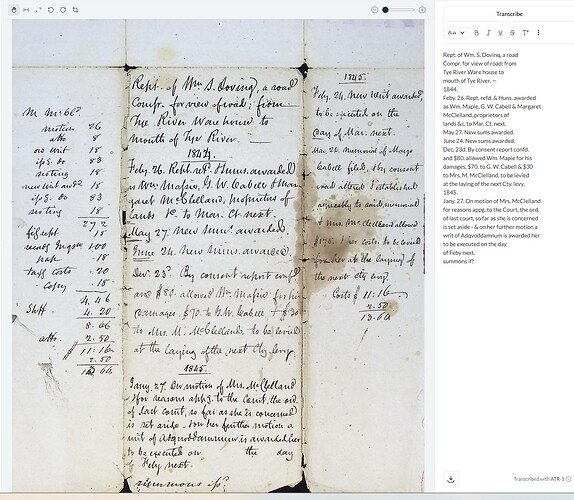 Transcribe
Aa
B
I
U
S
M McCl.
motion 26
atto 8
ord writ 18
83
noting 18
new writ awd 18
83
noting 18
2 72
fil. rept 18
100
18
taxg costs 20
Copy 18
4.46
Shff 4.20
8.66
atto. 2.50
11:16
2.50
13.66
Rept. of Wm. S. Loving, a road
Compr. for view of road; from
Tye River Ware house to
mouth of Tye River. —
1844.
Feby. 26. Rept. retd. & Sums. awarded
vs Wm Mapin, G. W. Cabell & Mar
garet McClelland, proprietors of
lands &c. to Mar. Ct. next.
May 27. New sums. awarded.
June 24. New sums. awarded.
Dec. 23d. By consent report confd
and $80. allowed Wm Mapin for his
damages, $70. to G. W. Cabell & $30
to Mrs. M. McClelland, to be levied
at the laying of the next Cty. levy.
1845.
Jany. 27. On motion of Mrs. McClelland
& for reasons app.g to the Court, the ord.
of last court, so far as she is concerned
is set aside - & on her further motion a
writ of Adquoddamnum is awarded her
to be executed on the day
of Feby next.
summons iss?
1845.
Feby. 24. New writ awarded,
to be executed on the
day of Mar. next.
May 26. Memorial of Margo
Cabell filed, & by consent
road altered & established
agreeably to said memorial
& Mrs. McClelland allowed
& her costs to be levied
for her at the laying of
the next cty levy.
Costs $11:16
2.50
13.66
Rept. of Wm. S. Dovinq, a road
Compr. for view of road; from
Tye River Ware house to
mouth of Tye River. —
1844.
Feby. 26. Rept. refd. & Huns. awarded
as Wm. Mapie, G. W. Cabell & Margaret
McClelland, proprietors of
lands &c. to Mar. Ct. next.
May 27. New sums awarded.
June 24. New sums awarded.
Dec. 23d. By consent report confd.
and $80. allowed Wm. Mapie for his
damages, $70. to G. W. Cabell & $30
to Mrs. M. McClelland, to be levied
at the laying of the next Cty. levy.
1845.
Jany. 27. On motion of Mrs. McClelland
for reasons appg. to the Court, the ord.
of last court, so far as she is concerned
is set aside - & on her further motion a
writ of Adqvoddamnum is awarded her
to be executed on the day
of Feby next.
summons if?
Transcribed with ATR-1